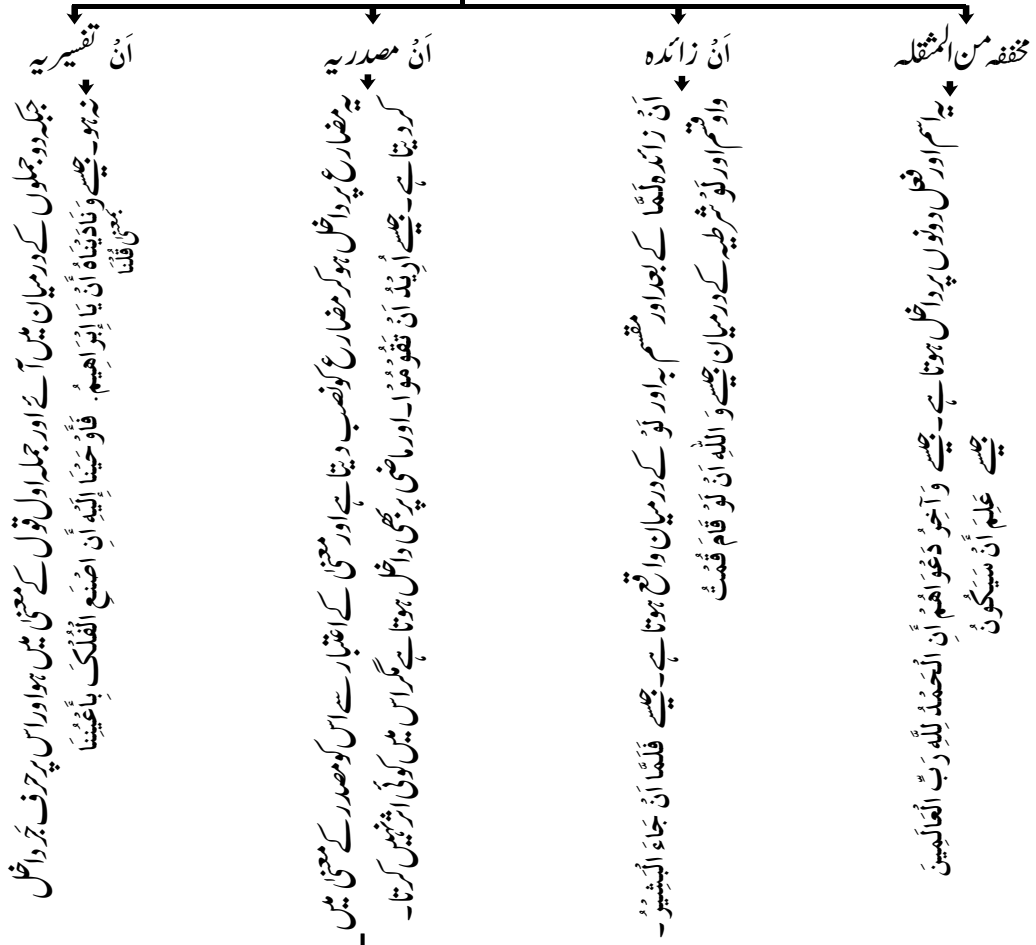 مخففہ من المثقلہ
یہ اسم اور فعل دونوں پر داخل ہوتا ہے۔ جیسے وَآخِرُ دَعْوَاهُمْ أَنِ الْحَمْدُ لِلّٰهِ رَبِّ الْعَالَمِيْنَ
جیسے عَلِمَ أَنْ سَيَكُوْنُ
اَنْ زائدہ
اَنْ زائدہ لَمَّا کے بعد اور مقسم بہ اور لَوْ کے درمیان واقع ہوتا ہے۔ جیسے فَلَمَّا اَنْ جَاءَ الْبَشِيْرُ۔
واو قسم اور لَوْ شرطیہ کے درمیان جیسے وَ اللّٰهِ اَنْ لَوْ قَامَ قُمْتُ
اَنْ مصدریہ
یہ مضارع پر داخل ہو کر مضارع کو نصب دیتا ہے اور معنیٰ کے اعتبار سے اس کو مصدر کے معنیٰ میں
کر دیتا ہے۔ جیسے اُرِيْدُ اَنْ تَقُوْمُوْا۔ اور ماضی پر بھی داخل ہوتا ہے مگر اس میں کوئی اثر نہیں کرتا۔
اَنْ تفسیریہ
جبکہ دو جملوں کے درمیان میں آئے اور جملہ اول قول کے معنیٰ میں ہو اور اس پر حرف جَر داخل
نہ ہو۔ جیسے وَنَادَيْنَاهُ أَنْ يَا إِبْرَاهِيْمُ. فَأَوْحَيْنَا إِلَيْهِ أَنِ اصْنَعِ الْفُلْكَ بِأَعْيُنِنَا
بمعنیٰ قُلْنَا